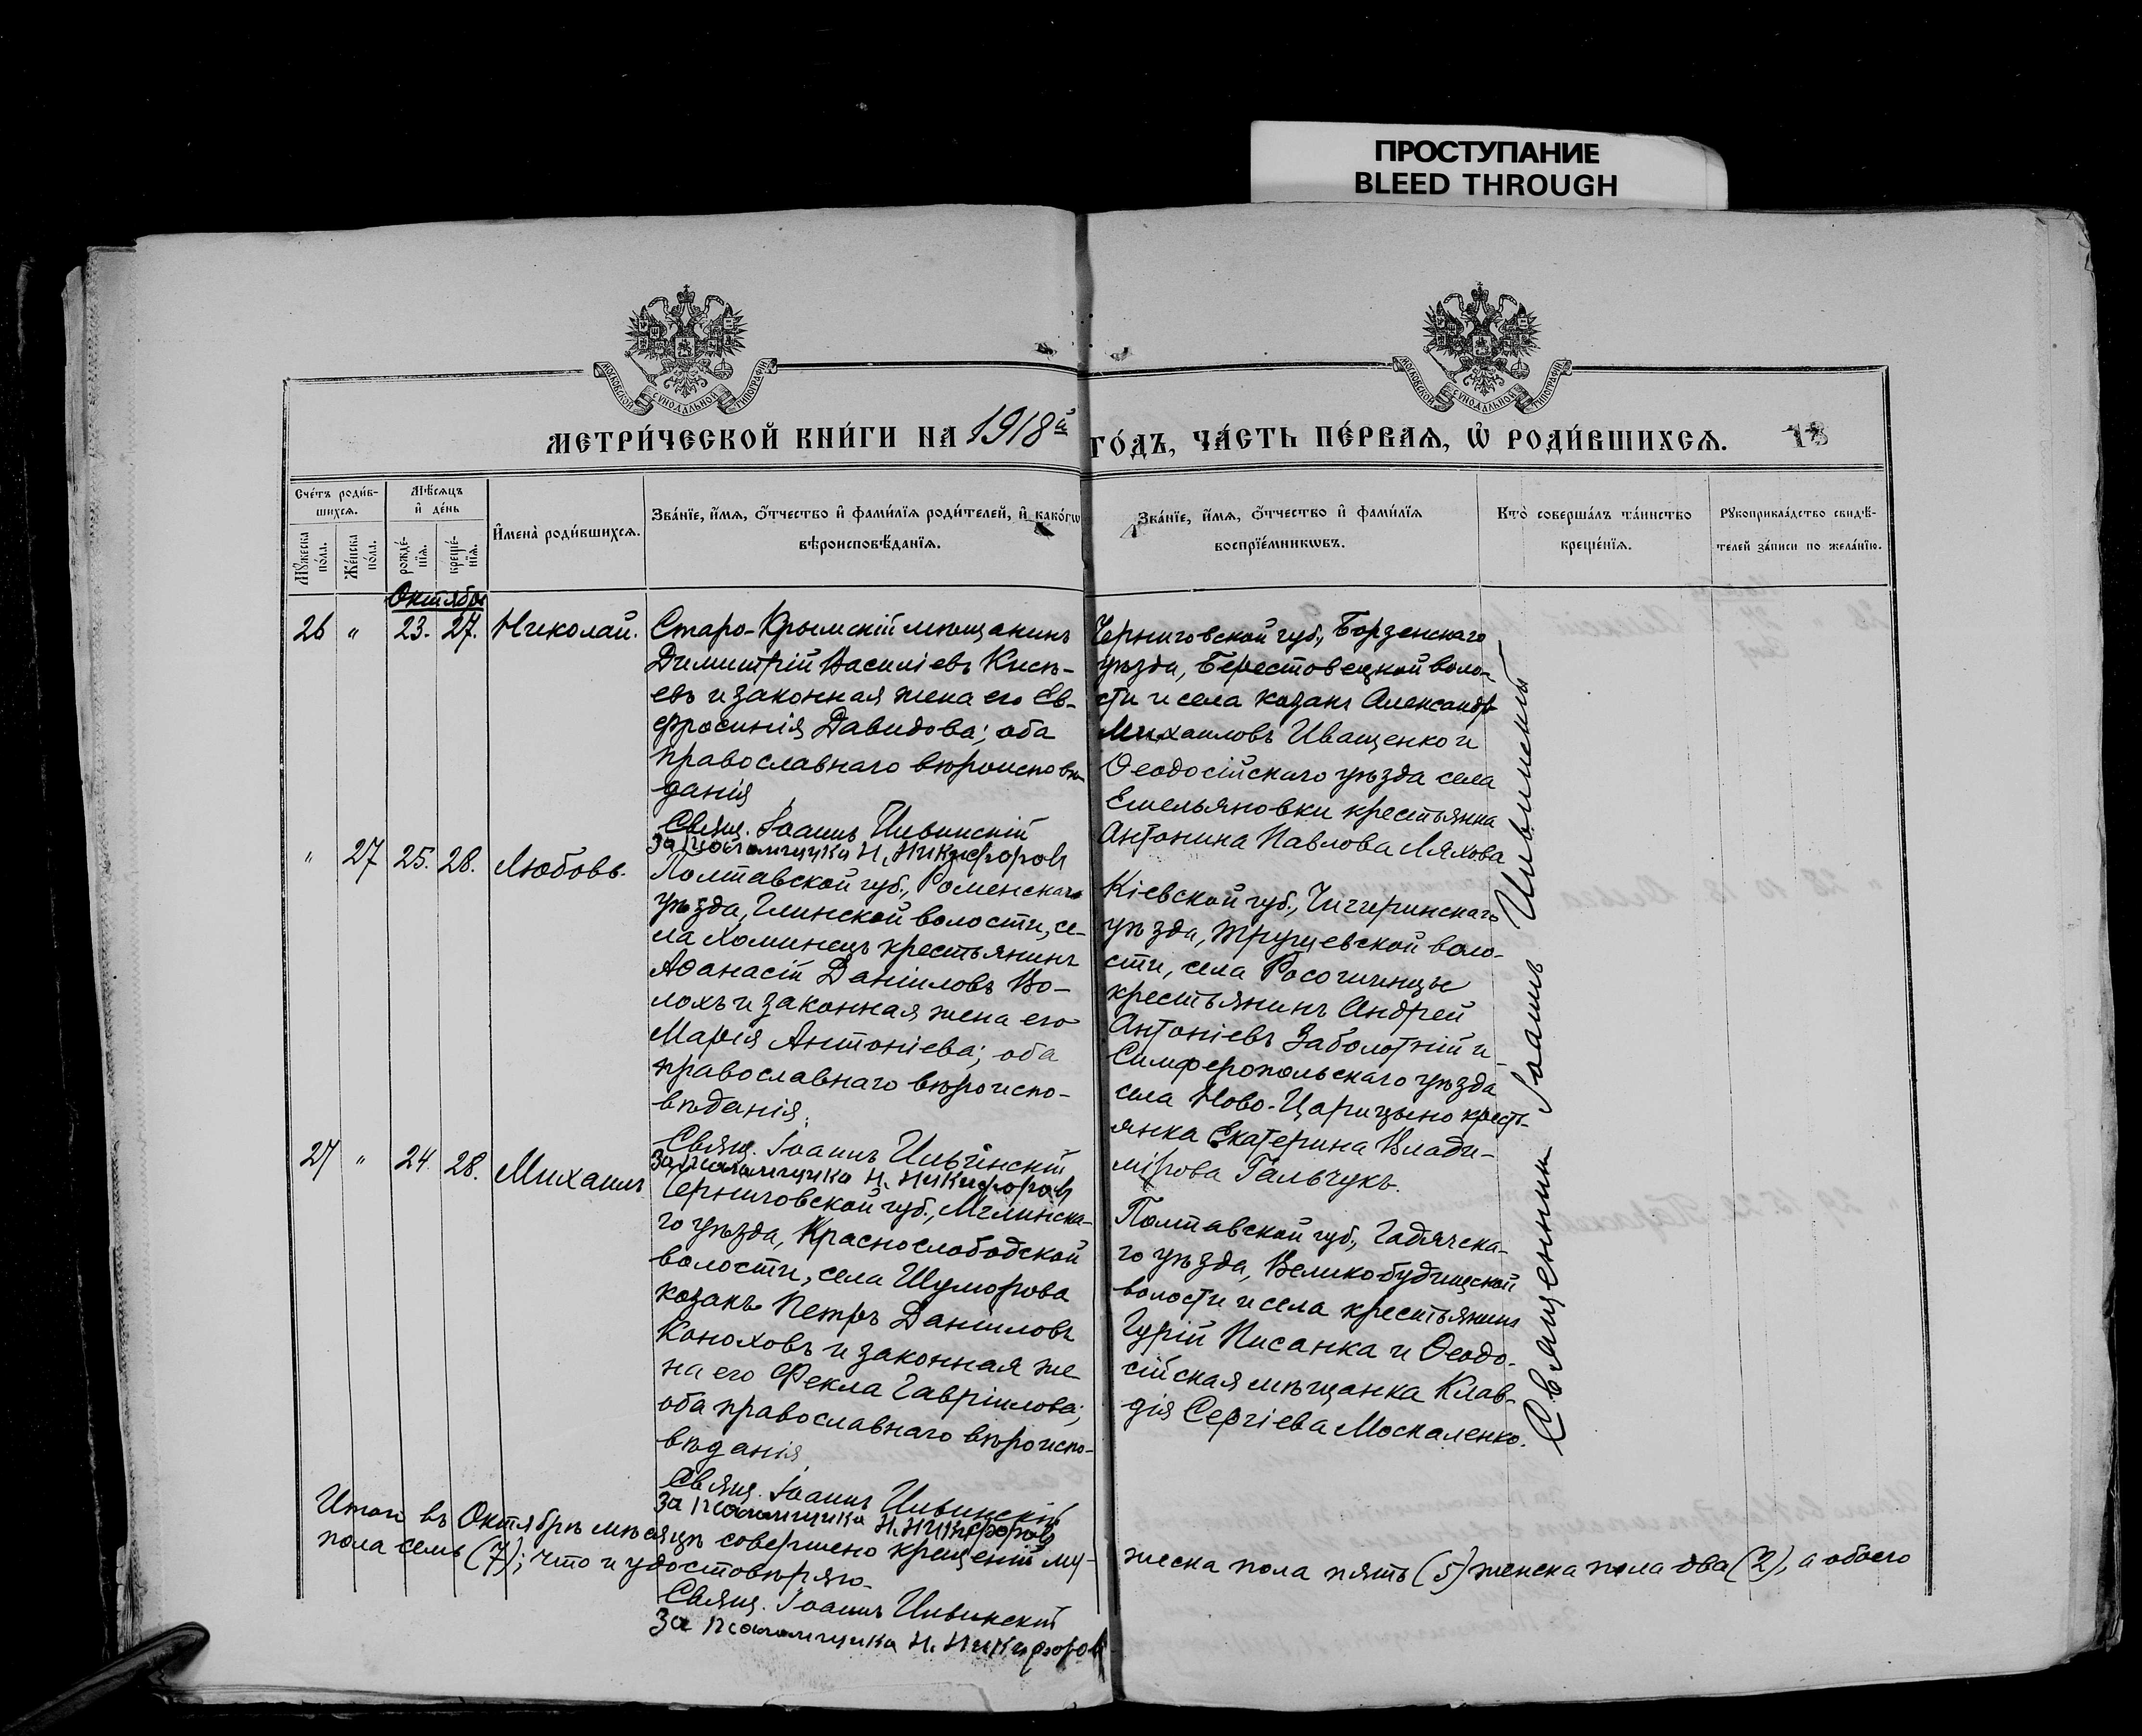 ПРОСТУПАНИЕ
BLEED THROUGH
МОСКОВСКОЙ СѴНОДАЛЬНОЙ ТИПОГРАФІИ
МОСКОВСКОЙ СѴНОДАЛЬНОЙ ТИПОГРАФІИ
МЕТРИ́ЧЕСКОЙ КНИ́ГИ НА 1918й ГО́ДЪ, ЧА́СТЬ ПЕ́РВАѦ, Ѡ҆ РОДИ́ВШИХСѦ. 18
Сче́тъ роди́в-
шихсѧ.
Мѣ́сѧцъ
и҆ де́нь
Мꙋ́жеска по́ла.
Же́нска по́ла.
рожде́-нїѧ.
креще́-нїѧ.
И҆мена̀ роди́вшихсѧ.
Зва́нїе, и҆́мѧ, ѻ҆́тчество и҆ фами́лїѧ роди́телей, и҆ како́гѡ
вѣроисповѣ́данїѧ.
Зва́нїе, и҆́мѧ, ѻ҆́тчество и҆ фами́лїѧ
воспрїе́мникѡвъ.
Кто̀ соверша́лъ та́инство
креще́нїѧ.
Рꙋкоприкла́дство свидѣ́-
телей за́писи по жела́нїю.
Октябрь
26 " 23. 27. Николай.
Старо-Крымскій мѣщанинъ
Димитрій Василіевъ Князь-
евъ и законная жена его Ев-
фросинія Давидова; оба
православнаго вѣроисповѣ-
данія
Свящ. Іоаннъ Ильинскій
За псаломщика Н. Никифоровъ
Черниговской губ., Борзенскаго
уѣзда, Берестовецкой воло-
сти и села козакъ Александръ
Михаиловъ Иващенко и
Ѳеодосійскаго уѣзда села
Емельяновки крестьянка
Антонина Павлова Ляхова
" 27 25. 28. Любовь.
Полтавской губ., Роменскаго
уѣзда, Глинской волости, се-
ла Хоминецъ крестьянинъ
Аѳанасій Даніиловъ Во-
лохъ и законная жена его
Марія Антоніева; оба
православнаго вѣроиспо-
вѣданія.
Свящ. Іоаннъ Ильинскій
За псаломщика Н. Никифоровъ
Кіевской губ., Чигиринскаго
уѣзда, Трушевской воло-
сти, села Росошинцы
крестьянинъ Андрей
Антоніевъ Заболотній и
Симферопольскаго уѣзда
села Ново-Царицыно кресть-
янка Екатерина Влади-
мірова Гальчукъ.
27 " 24. 28. Михаилъ
Черниговской губ., Мглинска-
го уѣзда, Краснослободской
волости, села Шуморова
козакъ Петръ Даніиловъ
Коноховъ и законная же
на его Фекла Гавріилова;
оба православнаго вѣроиспо-
вѣданія
Свящ. Іоаннъ Ильинскій
За псаломщика Н. Никифоровъ
Полтавской губ., Гадячска-
го уѣзда, Великобудищской
волости и села крестьянинъ
Гурій Писанка и Ѳеодо-
сійская мѣщанка Клав-
дія Сергіева Москаленко.
Священникъ Іоаннъ Ильинскій
Итого въ Октябрѣ мѣсяцѣ совершено крещеній му-
жеска пола пять (5) женска пола два (2), а обоего
пола семь (7); что и удостовѣряю.
Свящ. Іоаннъ Ильинскій
За псаломщика Н. Никифоровъ